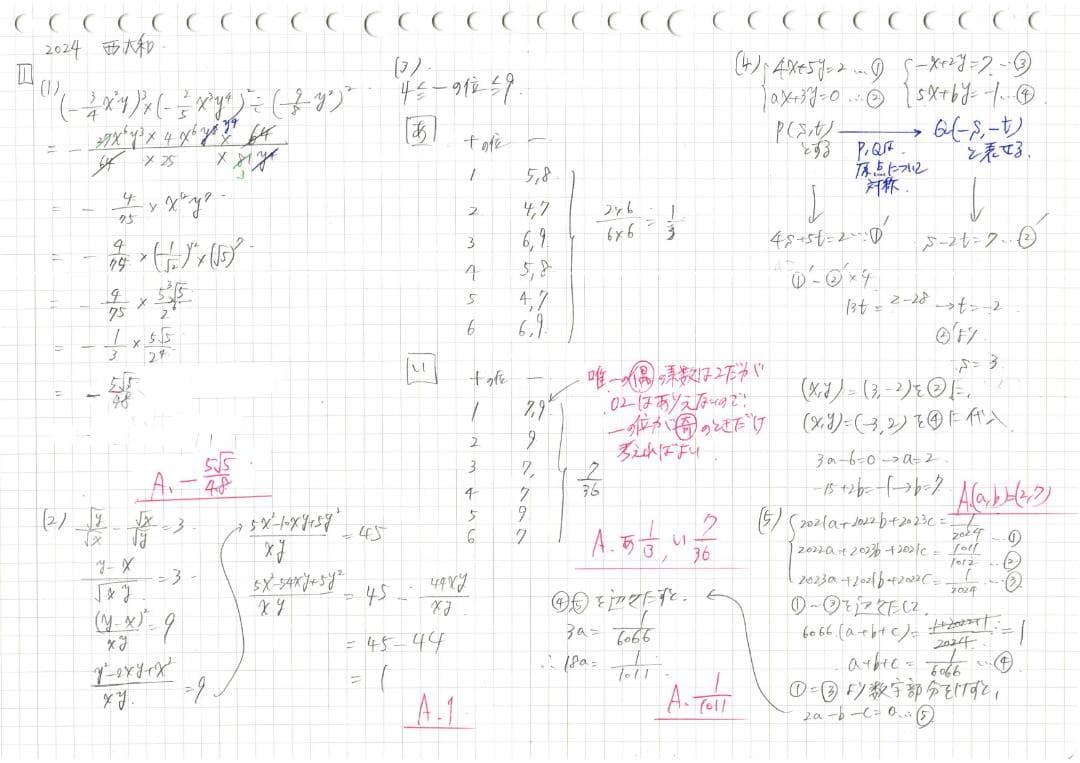 2024 西大和
1
(1)
(-3/4 x²y)³×(-2/5 x³y⁴)²÷(-9/8 y²)²
= - 27x⁶y³ × 4x⁶y⁸ × 64 / 64 × 25 × 81y⁴
y⁴
3
= - 4/75 × x¹²y⁷
= - 4/75 × (1/√2)¹² × (√5)⁷
= - 4/75 × 5³√5/2⁶
= - 1/3 × 5√5/2⁴
= - 5√5/48
A. - 5√5/48
(2) √y/√x - √x/√y = 3
y-x/√xy = 3
(y-x)²/xy = 9
y²-2xy+x²/xy = 9
5x²-10xy+5y²/xy = 45
5x²-54xy+5y²/xy = 45 - 44xy/xy
= 45-44
= 1
A. 1
(3)
4≦一の位≦9
あ
十の位 一
1 5,8
2 4,7
3 6,9
4 5,8
5 4,7
6 6,9
2×6/6×6 = 1/3
い
十の位 一
1 7,9
2 9
3 7,
4 7
5 9
6 7
7/36
唯一の偶の素数は2だが
02はありえないので、
一の位が奇のときだけ
考えればよい
A. あ 1/3, い 7/36
(4) 4x+5y=2 …①
ax+3y=0 …②
-x+2y=7 …③
5x+by=-1 …④
P(s,t) → Q(-s,-t)
とする
と表せる
P,Qは
原点について
対称
4s+5t=2 …①′
s-2t=7 …②′
①′-②′×4
13t=2-28→t=-2
②′より
s=3
(x,y)=(3,-2)を②に、
(x,y)=(-3,2)を④に代入
3a-6=0→a=2
-15+2b=-1→b=7
A.(a,b)=(2,7)
(5) 2021a+2022b+2023c=1/2024 …①
2022a+2023b+2021c=1011/1012 …②
2023a+2021b+2022c=1/2024 …③
①~③を辺々たして
6066(a+b+c)=1+2022+1/2024=1
a+b+c=1/6066 …④
①=③より数字部分を消すと,
2a-b-c=0 …⑤
④⑤を辺々たすと、
3a=1/6066
∴18a=1/1011
A. 1/1011